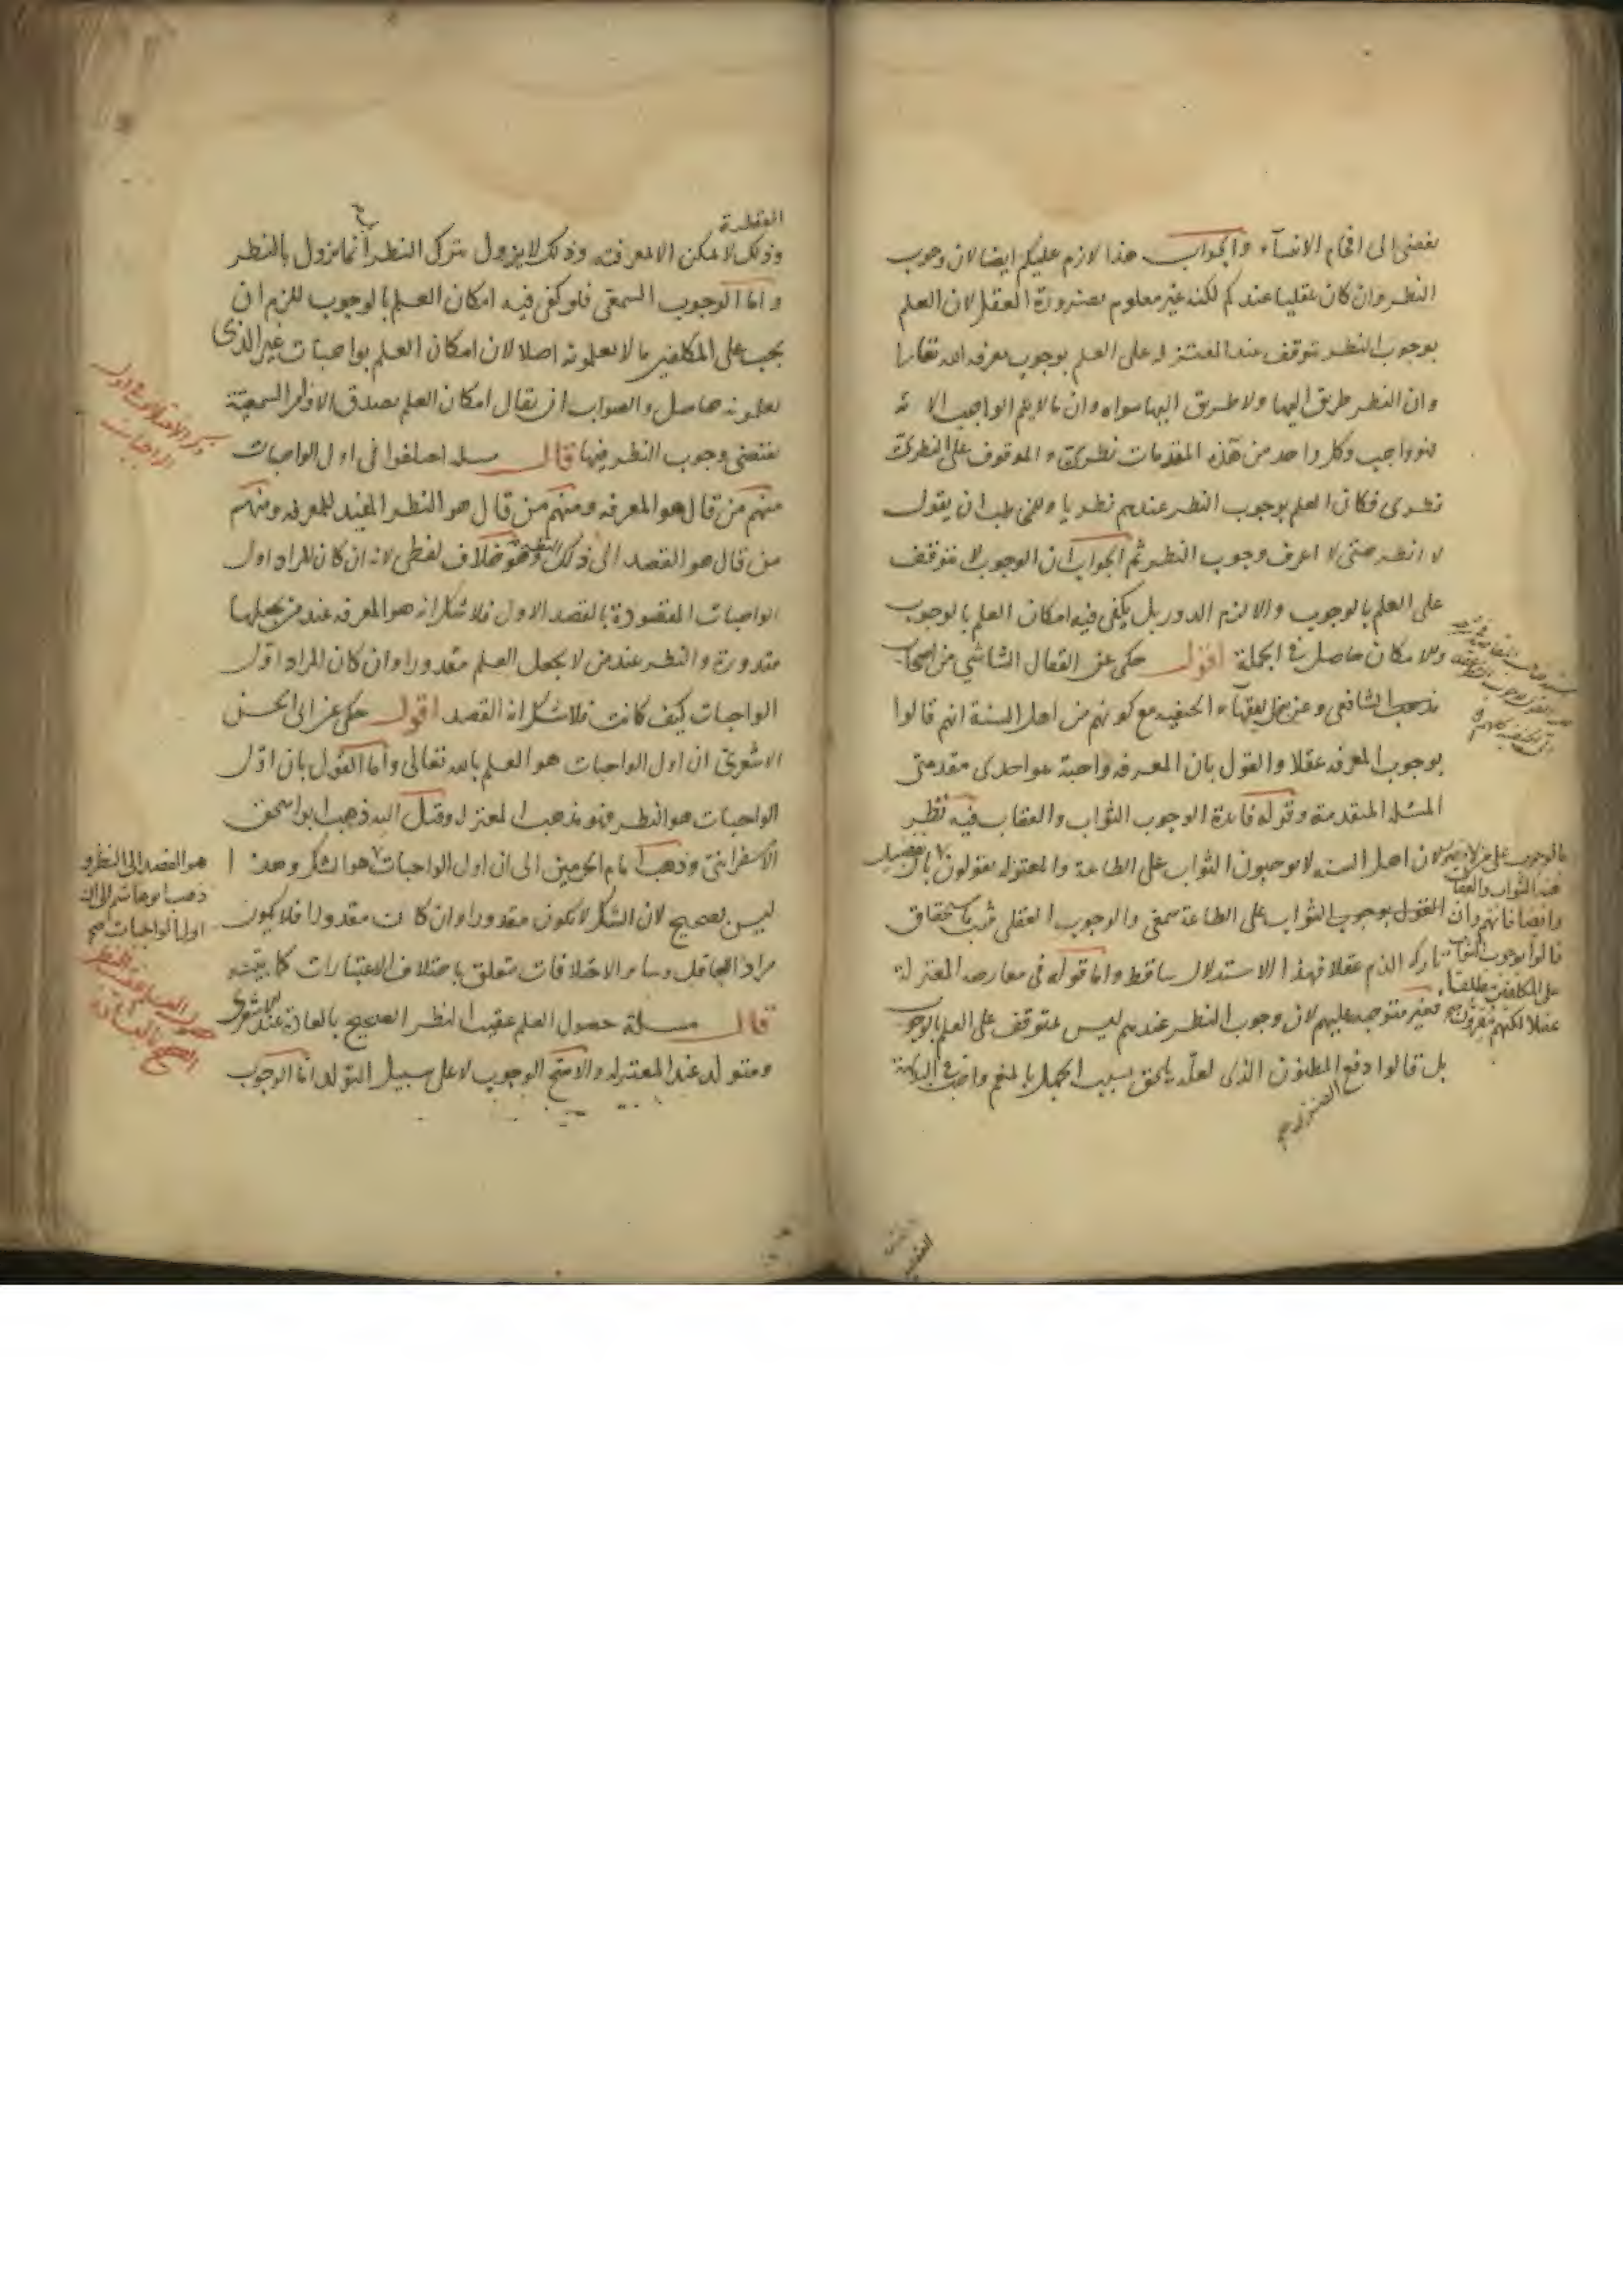 يفضى الى افحام الانبيآء والجواب هذا لازم عليكم ايضا لان وجوب
النظر وان كان عقليا عندكم لكنه غير معلوم بضرورة العقل لان العلم
بوجوب النظر يتوقف عند المعتزله على العلم بوجوب معرفه الله تعالى
وان النظر طريق اليها ولا طريق اليها سواه وان ما لا يتم الواجب الا به
فهو واجب وكل واحد من هذه المقدمات نظرية والموقوف على النظرى
نظرى فكان العلم بوجوب النظر عندهم نظريا وللمخاطب ان يقول
لا انظر حتى لا اعرف وجوب النظر ثم الجواب ان الوجوب لا يتوقف
على العلم بالوجوب والا لزم الدور بل يكفى فيه امكان العلم بالوجوب
والامكان حاصل فى الجملة اقول حكى عن القفال الشاشي من اصحاب
مذهب الشافعى وعن بعض فقهآء الحنفيه مع كونهم من اهل السنة انهم قالوا
بوجوب المعرفه عقلا والقول بان المعرفه واجبة هو احدى مقدمتى
المسئله المتقدمة وقوله فايدة الوجوب الثواب والعقاب فيه نظر
لان اهل السنه لا يوجبون الثواب على الطاعة والمعتزله يقولون
بالوجوب
هذا الثواب والعقاب
وايضا فانهم وان
قالوا بوجوب
على المكلفين مطلقا
عقلا لكنهم
القول بوجوب الثواب على الطاعة سمعى والوجوب العقلى يثبت باستحقاق
تاركه الذم عقلا فهذا الاستدلال ساقط واما قوله فى معارضه المعتزلة
فغير متوجه عليهم لان وجوب النظر عندهم ليس بمتوقف على العلم بالوجوب
بل قالوا دفع المظنون الذى لعله يلحق بسبب الجهل بالمنعم واجب فى البديهة
الضرر
العقلية
وذلك لا يمكن الا بمعرفته وذلك لا يزول بترك النظر انما يزول بالنظر
واما الوجوب السمعى فلو كفى فيه امكان العلم بالوجوب للزم ان
يجب على المكلفين ما لا يعلمونه اصلا لان امكان العلم بواجبات غير الذى
يعلمونه حاصل والصواب ان يقال امكان العلم بصدق الاوامر السمعية
يقتضى وجوب النظر فيها قال مسله اختلفوا فى اول الواجبات
ذكر الاختلاف فى اول
الواجبات
منهم من قال هو المعرفه ومنهم من قال هو النظر المفيد للمعرفه ومنهم
من قال هو القصد الى ذلك النظر وهو خلاف لفظى لانه ان كان المراد اول
الواجبات المقصودة بالقصد الاول فلا شك انه هو المعرفه عند من يجعلها
مقدورة والنظر عند من لا يجعل العلم مقدورا وان كان المراد اول
الواجبات كيف كانت فلا شك انه القصد اقول حكى عن ابى الحسن
الاشعرى ان اول الواجبات هو العلم بالله تعالى واما القول بان اول
الواجبات هو النظر فهو مذهب المعتزله وقيل اليه ذهب ابو اسحق
الاسفراينى وذهب امام الحرمين الى ان اول الواجبات هو الشكر وهذا
هو القصد الى النظر و
ذهب ابو هاشم الى ان
اول الواجبات صح
ليس بصحيح لان الشك لا يكون مقدورا وان كانت مقدورا فلا يكون
مراد العاقل وساير الاختلافات متعلق باختلاف الاعتبارات كما بينته
قال مسئلة حصول العلم عقيب النظر الصحيح بالعادة عند الاشعرى
حصول العلم عقيب النظر
الصحيح بالعادة
ومتولد عند المعتزله والاصح الوجوب لا على سبيل التولد اما الوجوب